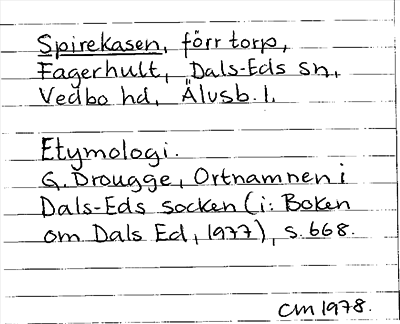 Spirekasen, förr torp,
Fagerhult, Dals-Eds sn,
Vedbo hd, Älvsb. l.
Etymologi.
G. Drougge, Ortnamnen i
Dals-Eds socken (i: Boken
om Dals Ed, 1977), s. 668.
CM 1978.